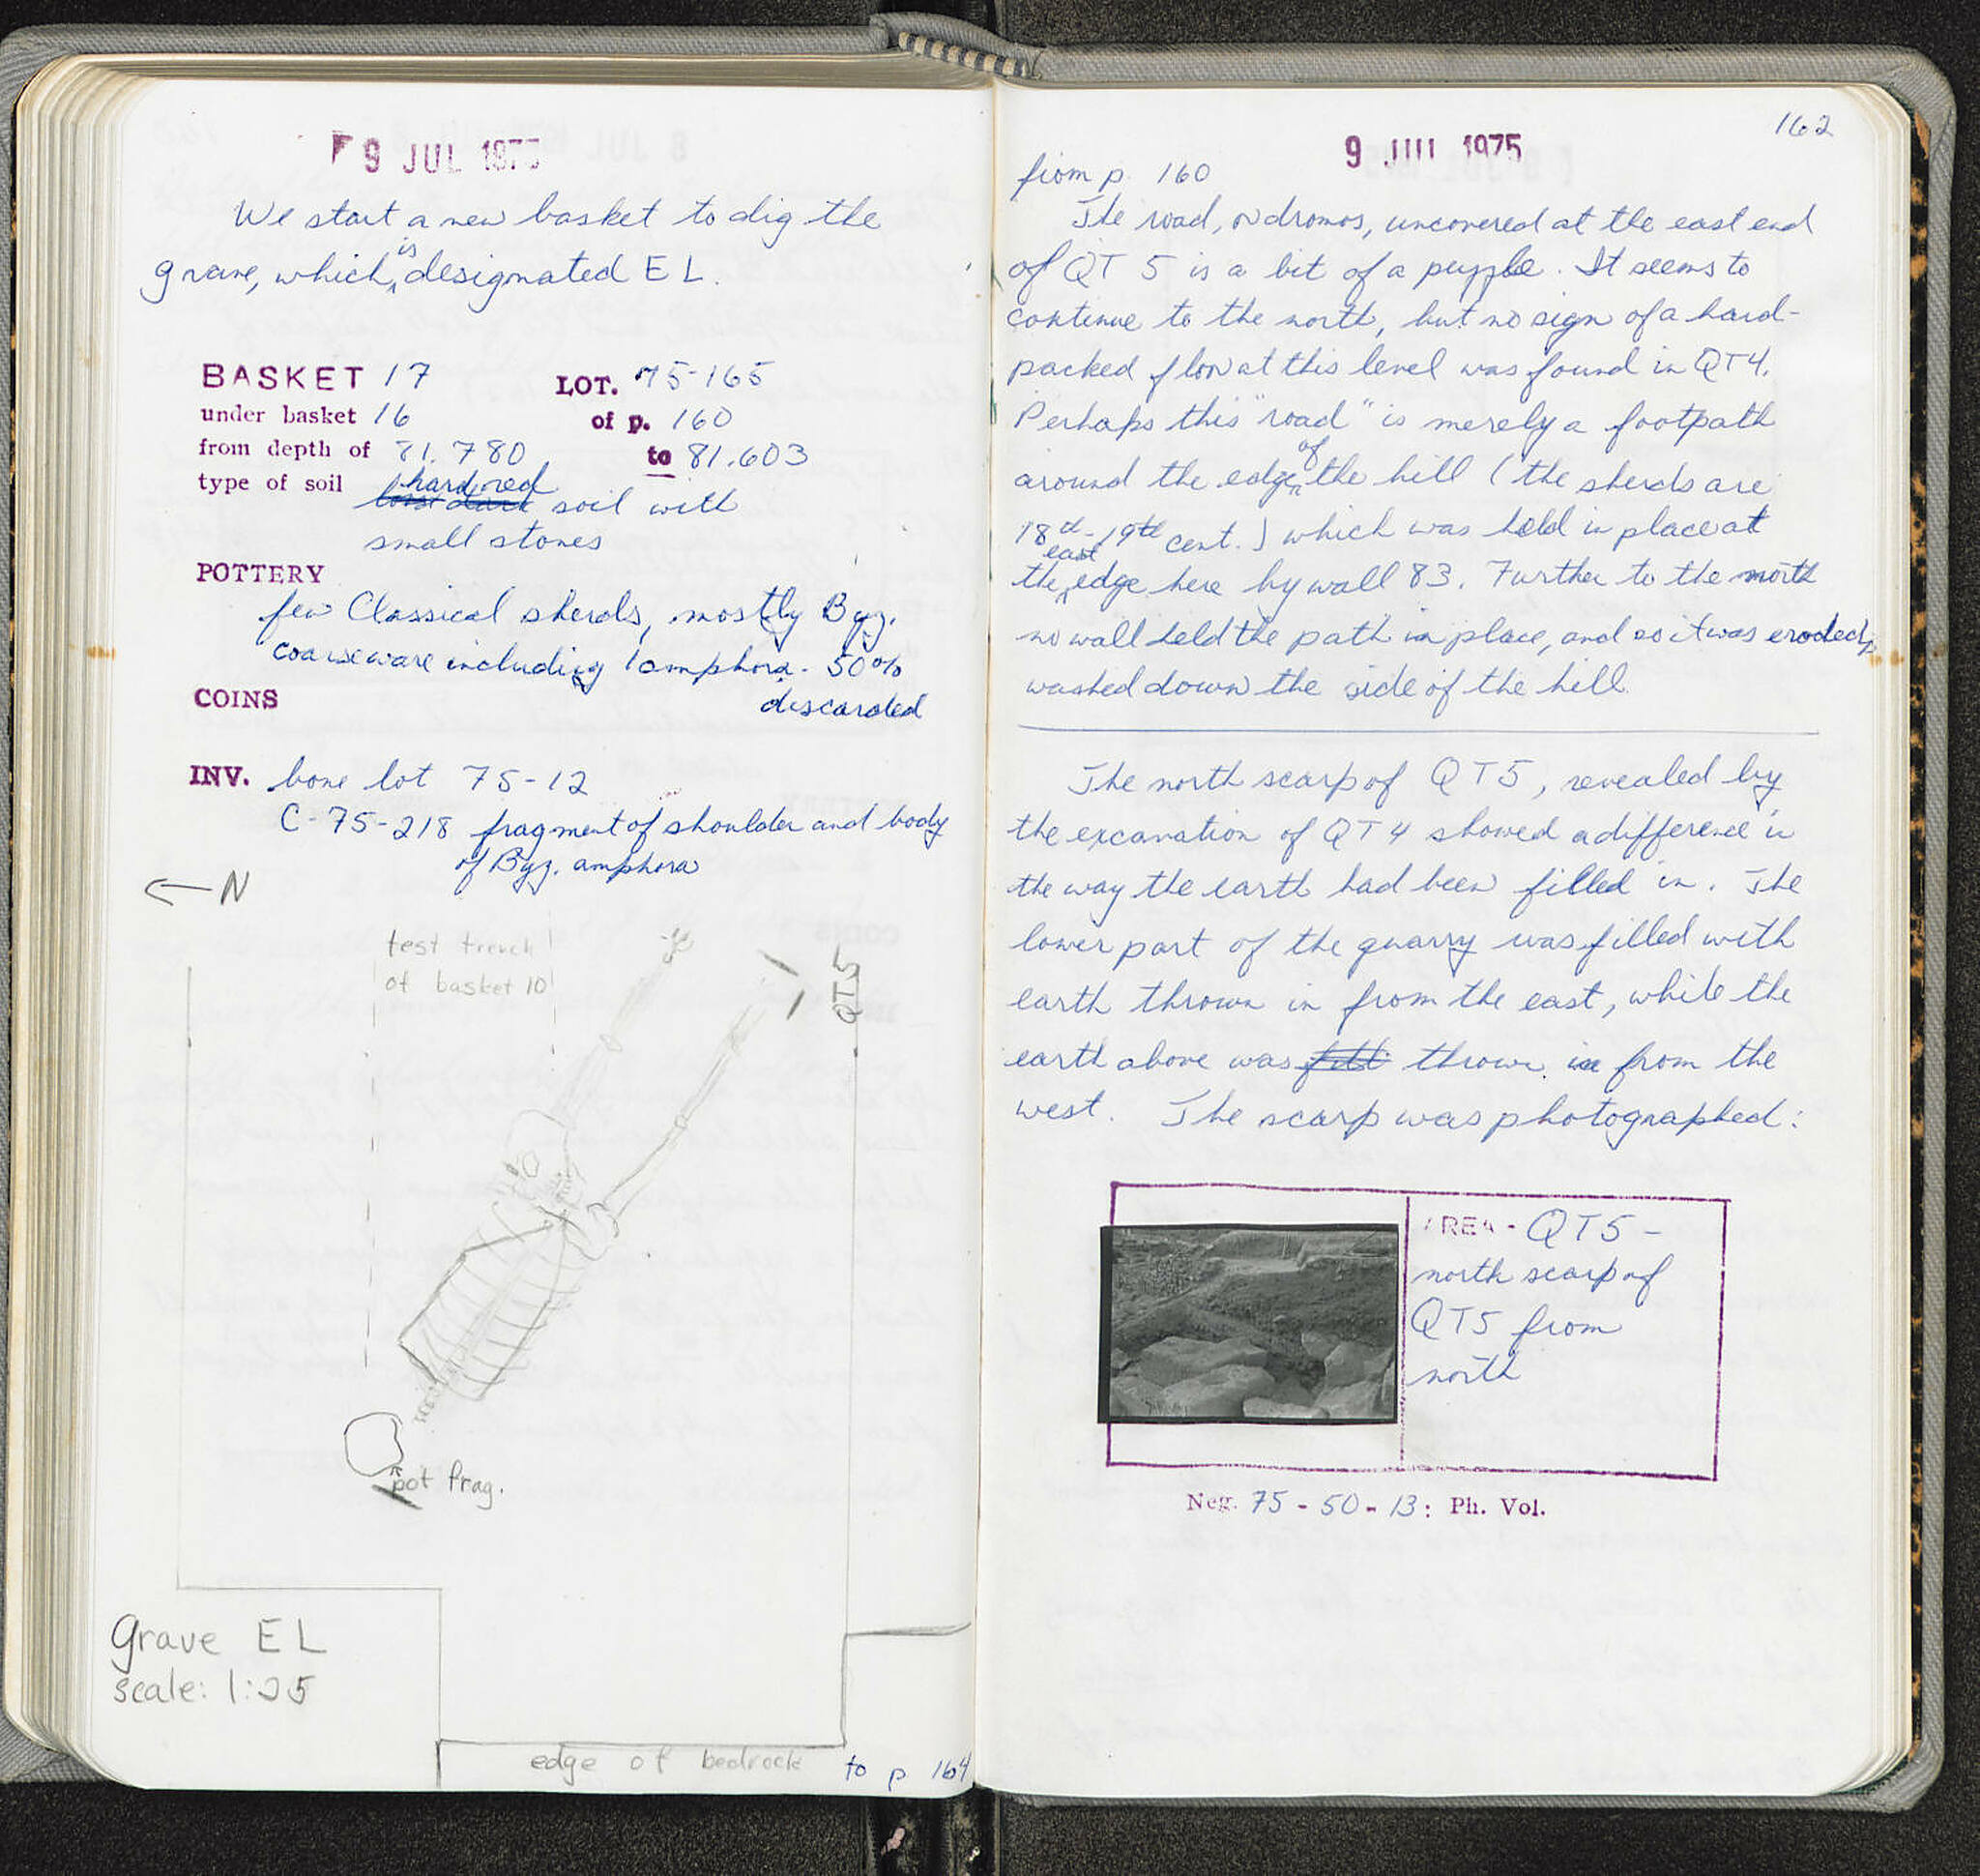 9 JUL 1975
We start a new basket to dig the
grave, which is designated EL.
BASKET 17 LOT. 75-165
under basket 16 of p. 160
from depth of 81.780 to 81.603
type of soil hard, red soil with
small stones
POTTERY
few Classical sherds, mostly Byz.
coarseware including 1 amphora. 50%
discarded
COINS
INV. bone lot 75-12
C-75-218 fragment of shoulder and body
of Byz. amphora
← N
test trench
of basket 10
QT5
pot frag.
grave EL
scale: 1:25
edge of bedrock
to p 164
162
9 JUL 1975
from p. 160
The road, or dromos, uncovered at the east end
of QT 5 is a bit of a puzzle. It seems to
continue to the north, but no sign of a hard-
packed floor at this level was found in QT4.
Perhaps this "road" is merely a footpath
around the edge of the hill (the sherds are
18th-19th cent.) which was held in place at
the east edge here by wall 83. Further to the north
no wall held the path in place, and so it was eroded,
washed down the side of the hill.
The north scarp of QT5, revealed by
the excavation of QT4 showed a difference in
the way the earth had been filled in. The
lower part of the quarry was filled with
earth thrown in from the east, while the
earth above was thrown in from the
west. The scarp was photographed:
AREA - QT5 -
north scarp of
QT5 from
north
Neg. 75-50-13: Ph. Vol.